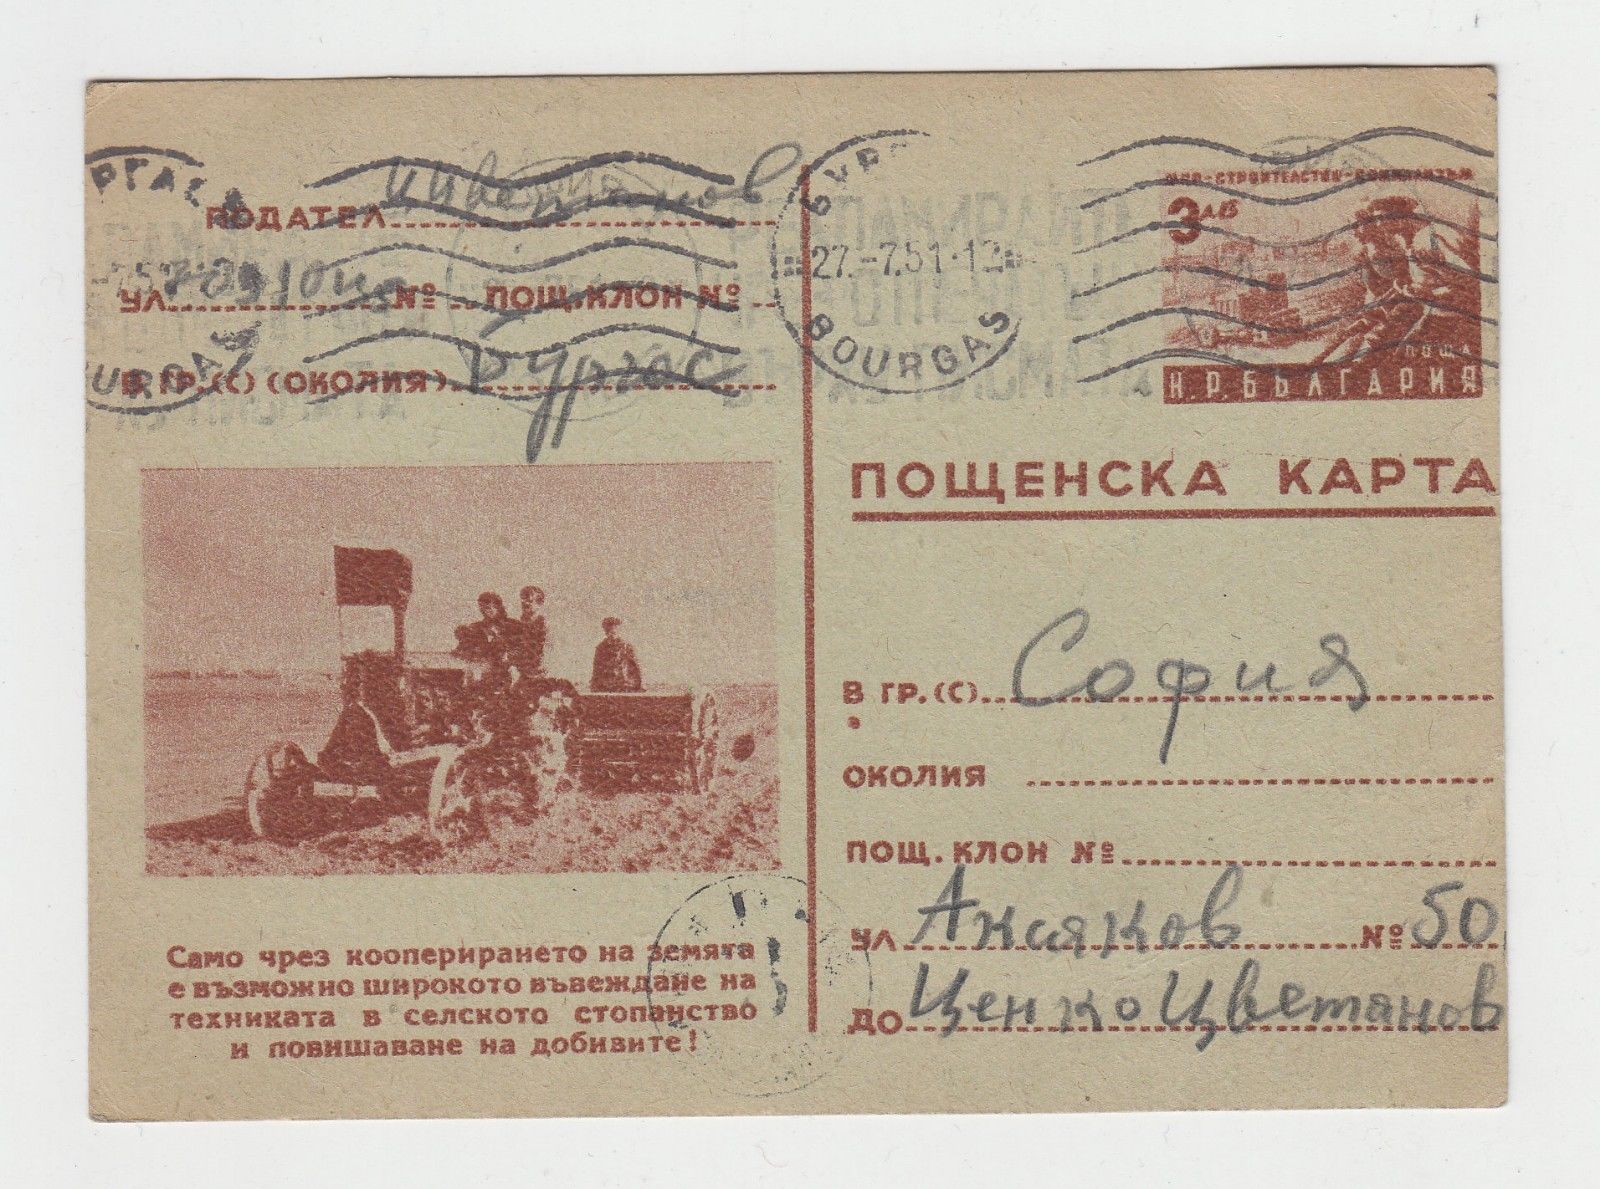 ПОДАТЕЛ Цветанов
УЛ. №. ПОЩ. КЛОН №
В ГР.(С) (ОКОЛИЯ) Бургас
БУРГ
27.-7.51-12
BOURGAS
3 ЛВ
ПОЩА
Н.Р.БЪЛГАРИЯ
ПОЩЕНСКА КАРТА
В ГР.(С) София
ОКОЛИЯ
ПОЩ. КЛОН №
УЛ. Аксаков № 50
ДО Ценко Цветанов
Само чрез кооперирането на земята
е възможно широкото въвеждане на
техниката в селското стопанство
и повишаване на добивите!